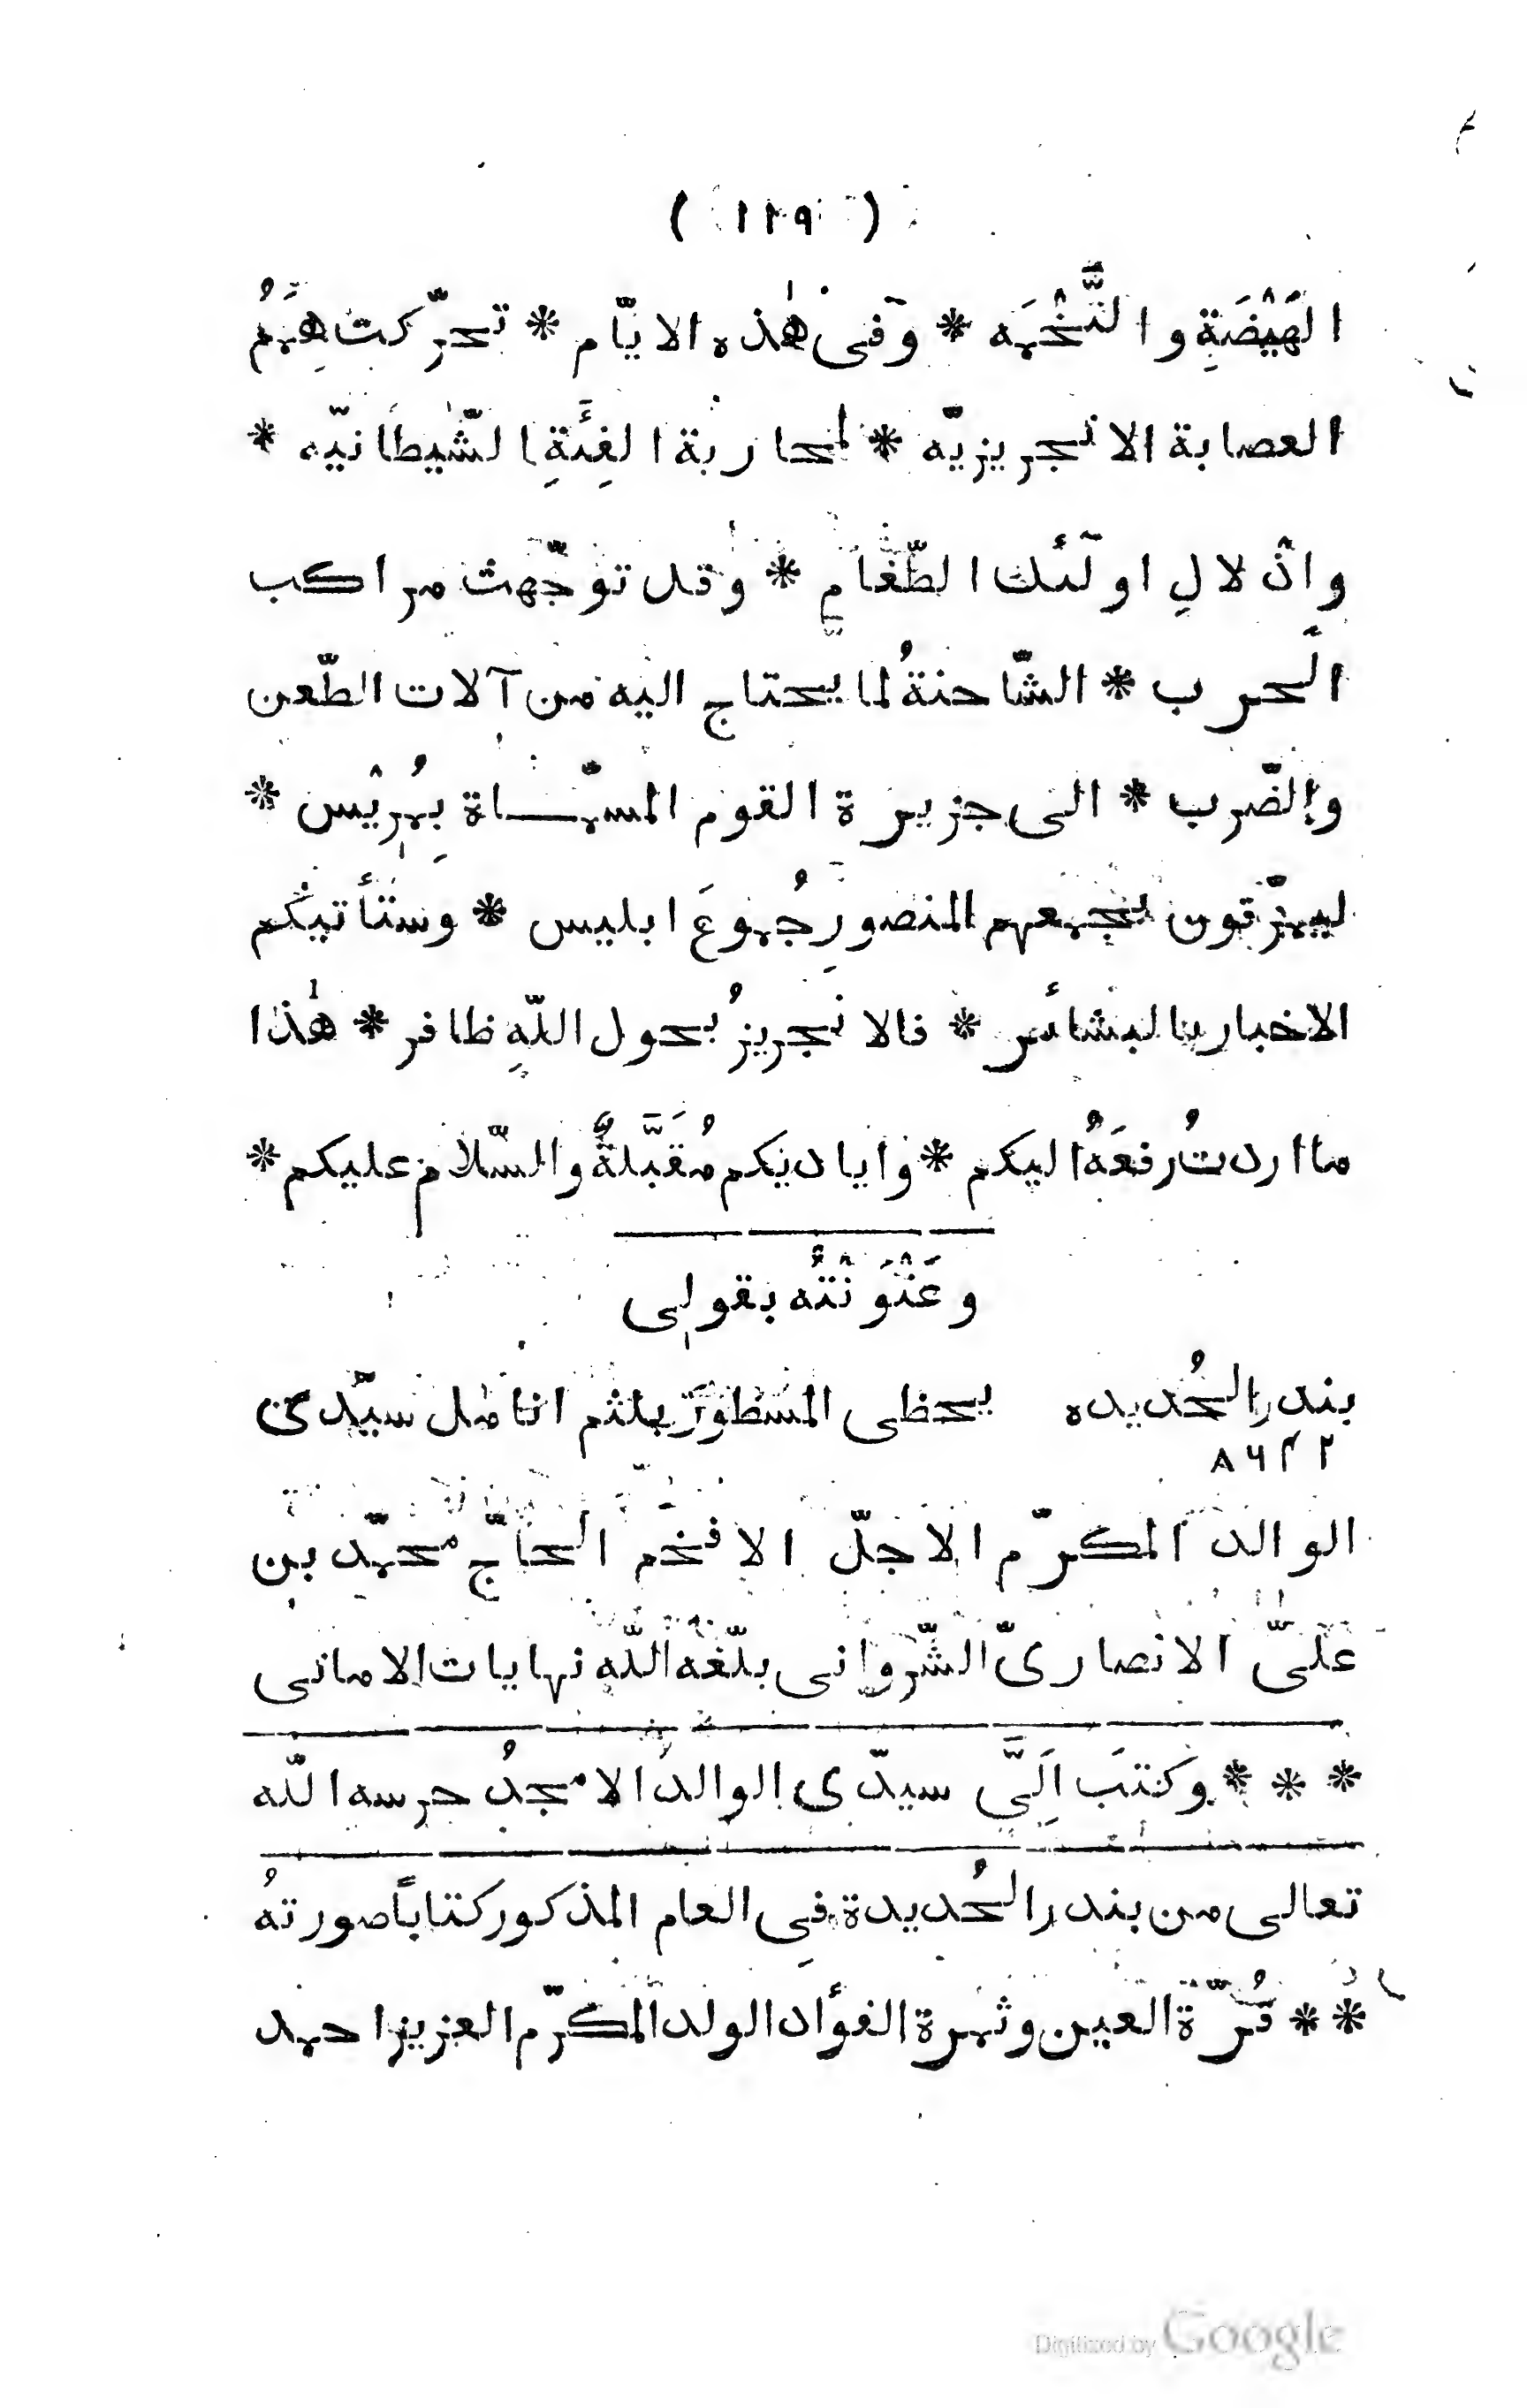 ( ١٢٩ )
الهَيْضَةِ والتُّخْمَه * وفى هٰذه الايّام * تحرّكت هِمَمُ
العصابة الانجريزيّه * لمحاربة الفِئَةِ الشّيطانيّه *
واذلالِ اولٓئك الطّغام * وقد توجّهت مراكب
الحرب * الشّاحنةُ لما يحتاج اليه من آلات الطّعن
والضّرب * الى جزيرة القوم المسمّاة بِمُرِيْس *
ليمزّقون بجمعهم المنصورِ جُموعَ ابليس * وستأتيكم
الاخبار بالبشائر * فالانجريزُ بحول اللّهِ ظافر * هٰذا
ما اردتُ رفعَهُ اليكم * وايا ديكم مُقَبَّلةٌ والسّلام عليكم *
وعَنْوَنْتُه بقولى
بندر الحُديده يحظى المسطور بلثم انامل سيّدى
٨٦٤٢
الوالد المكرّم الاجلّ الافخم الحاجّ محمّد بن
علىّ الانصارىّ الشّروانى بلّغه اللّه نهايات الامانى
* * * وكتبَ اِلَىَّ سيدّى الوالد الامجدُ حرسه اللّه
تعالى من بندر الحُديدة فِى العام المذكور كتاباً صورتهُ
* * قُرّة العين وثمرة الفؤاد الولد المكرّم العزيز احمد
Digitized by Google